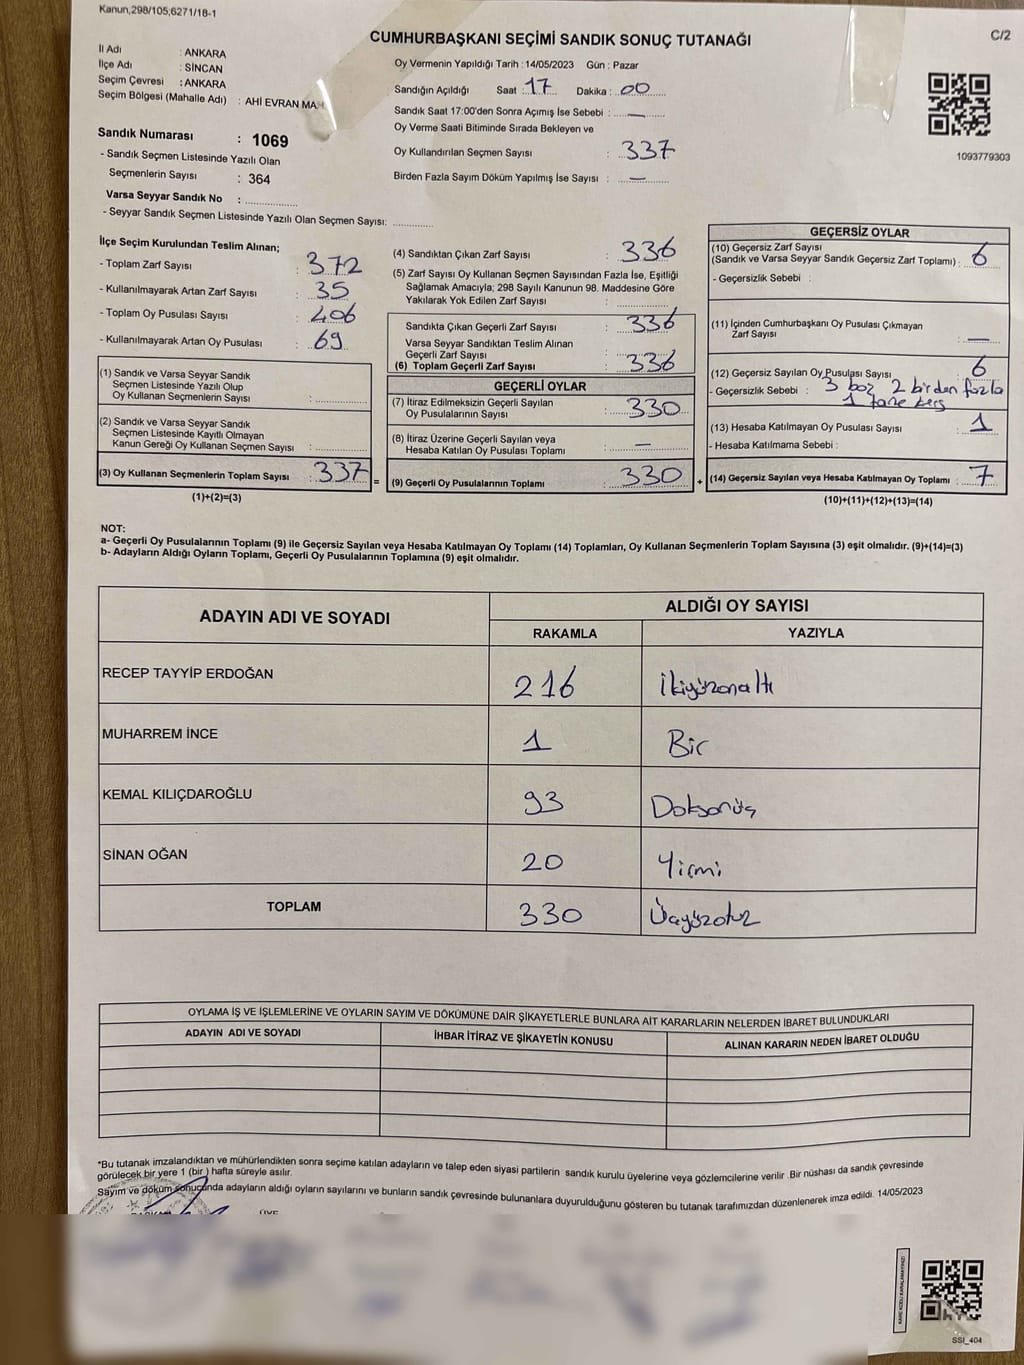 Kanun,298/105,6271/18-1
C/2
CUMHURBAŞKANI SEÇİMİ SANDIK SONUÇ TUTANAĞI
İl Adı : ANKARA
İlçe Adı : SİNCAN
Seçim Çevresi : ANKARA
Seçim Bölgesi (Mahalle Adı) : AHİ EVRAN MAH
Sandık Numarası : 1069
- Sandık Seçmen Listesinde Yazılı Olan
Seçmenlerin Sayısı : 364
Varsa Seyyar Sandık No :
- Seyyar Sandık Seçmen Listesinde Yazılı Olan Seçmen Sayısı:
Oy Vermenin Yapıldığı Tarih : 14/05/2023 Gün : Pazar
Sandığın Açıldığı Saat : 17 Dakika : 00
Sandık Saat 17:00'den Sonra Açımış İse Sebebi : —
Oy Verme Saati Bitiminde Sırada Bekleyen ve
Oy Kullandırılan Seçmen Sayısı : 337
Birden Fazla Sayım Döküm Yapılmış İse Sayısı : —
1093779303
İlçe Seçim Kurulundan Teslim Alınan;
- Toplam Zarf Sayısı : 372
- Kullanılmayarak Artan Zarf Sayısı : 35
- Toplam Oy Pusulası Sayısı : 406
- Kullanılmayarak Artan Oy Pusulası : 69
(1) Sandık ve Varsa Seyyar Sandık
Seçmen Listesinde Yazılı Olup
Oy Kullanan Seçmenlerin Sayısı :
(2) Sandık ve Varsa Seyyar Sandık
Seçmen Listesinde Kayıtlı Olmayan
Kanun Gereği Oy Kullanan Seçmen Sayısı :
(3) Oy Kullanan Seçmenlerin Toplam Sayısı : 337 =
(1)+(2)=(3)
(4) Sandıktan Çıkan Zarf Sayısı : 336
(5) Zarf Sayısı Oy Kullanan Seçmen Sayısından Fazla İse, Eşitliği
Sağlamak Amacıyla; 298 Sayılı Kanunun 98. Maddesine Göre
Yakılarak Yok Edilen Zarf Sayısı :
Sandıkta Çıkan Geçerli Zarf Sayısı : 336
Varsa Seyyar Sandıktan Teslim Alınan
Geçerli Zarf Sayısı :
(6) Toplam Geçerli Zarf Sayısı : 336
GEÇERLİ OYLAR
(7) İtiraz Edilmeksizin Geçerli Sayılan
Oy Pusulalarının Sayısı : 330
(8) İtiraz Üzerine Geçerli Sayılan veya
Hesaba Katılan Oy Pusulası Toplamı : —
(9) Geçerli Oy Pusulalarının Toplamı : 330 +
GEÇERSİZ OYLAR
(10) Geçersiz Zarf Sayısı
(Sandık ve Varsa Seyyar Sandık Geçersiz Zarf Toplamı) : 6
- Geçersizlik Sebebi :
(11) İçinden Cumhurbaşkanı Oy Pusulası Çıkmayan
Zarf Sayısı : —
(12) Geçersiz Sayılan Oy Pusulası Sayısı : 6
- Geçersizlik Sebebi : 3 boz 2 birden fazla
1 tane
(13) Hesaba Katılmayan Oy Pusulası Sayısı : 1
- Hesaba Katılmama Sebebi :
(14) Geçersiz Sayılan veya Hesaba Katılmayan Oy Toplamı : 7
(10)+(11)+(12)+(13)=(14)
NOT:
a- Geçerli Oy Pusulalarının Toplamı (9) ile Geçersiz Sayılan veya Hesaba Katılmayan Oy Toplamı (14) Toplamları, Oy Kullanan Seçmenlerin Toplam Sayısına (3) eşit olmalıdır. (9)+(14)=(3)
b- Adayların Aldığı Oyların Toplamı, Geçerli Oy Pusulalarının Toplamına (9) eşit olmalıdır.
ADAYIN ADI VE SOYADI
ALDIĞI OY SAYISI
RAKAMLA YAZIYLA
RECEP TAYYİP ERDOĞAN 216 İkiyüzonaltı
MUHARREM İNCE 1 Bir
KEMAL KILIÇDAROĞLU 93 Doksanüç
SİNAN OĞAN 20 Yirmi
TOPLAM 330 Üçyüzotuz
OYLAMA İŞ VE İŞLEMLERİNE VE OYLARIN SAYIM VE DÖKÜMÜNE DAİR ŞİKAYETLERLE BUNLARA AİT KARARLARIN NELERDEN İBARET BULUNDUKLARI
ADAYIN ADI VE SOYADI İHBAR İTİRAZ VE ŞİKAYETİN KONUSU ALINAN KARARIN NEDEN İBARET OLDUĞU
*Bu tutanak imzalandıktan ve mühürlendikten sonra seçime katılan adayların ve talep eden siyasi partilerin sandık kurulu üyelerine veya gözlemcilerine verilir .Bir nüshası da sandık çevresinde
görülecek bir yere 1 (bir ) hafta süreyle asılır.
Sayım ve döküm sonucunda adayların aldığı oyların sayılarını ve bunların sandık çevresinde bulunanlara duyurulduğunu gösteren bu tutanak tarafımızdan düzenlenerek imza edildi. 14/05/2023
ÜYE
SSI_404